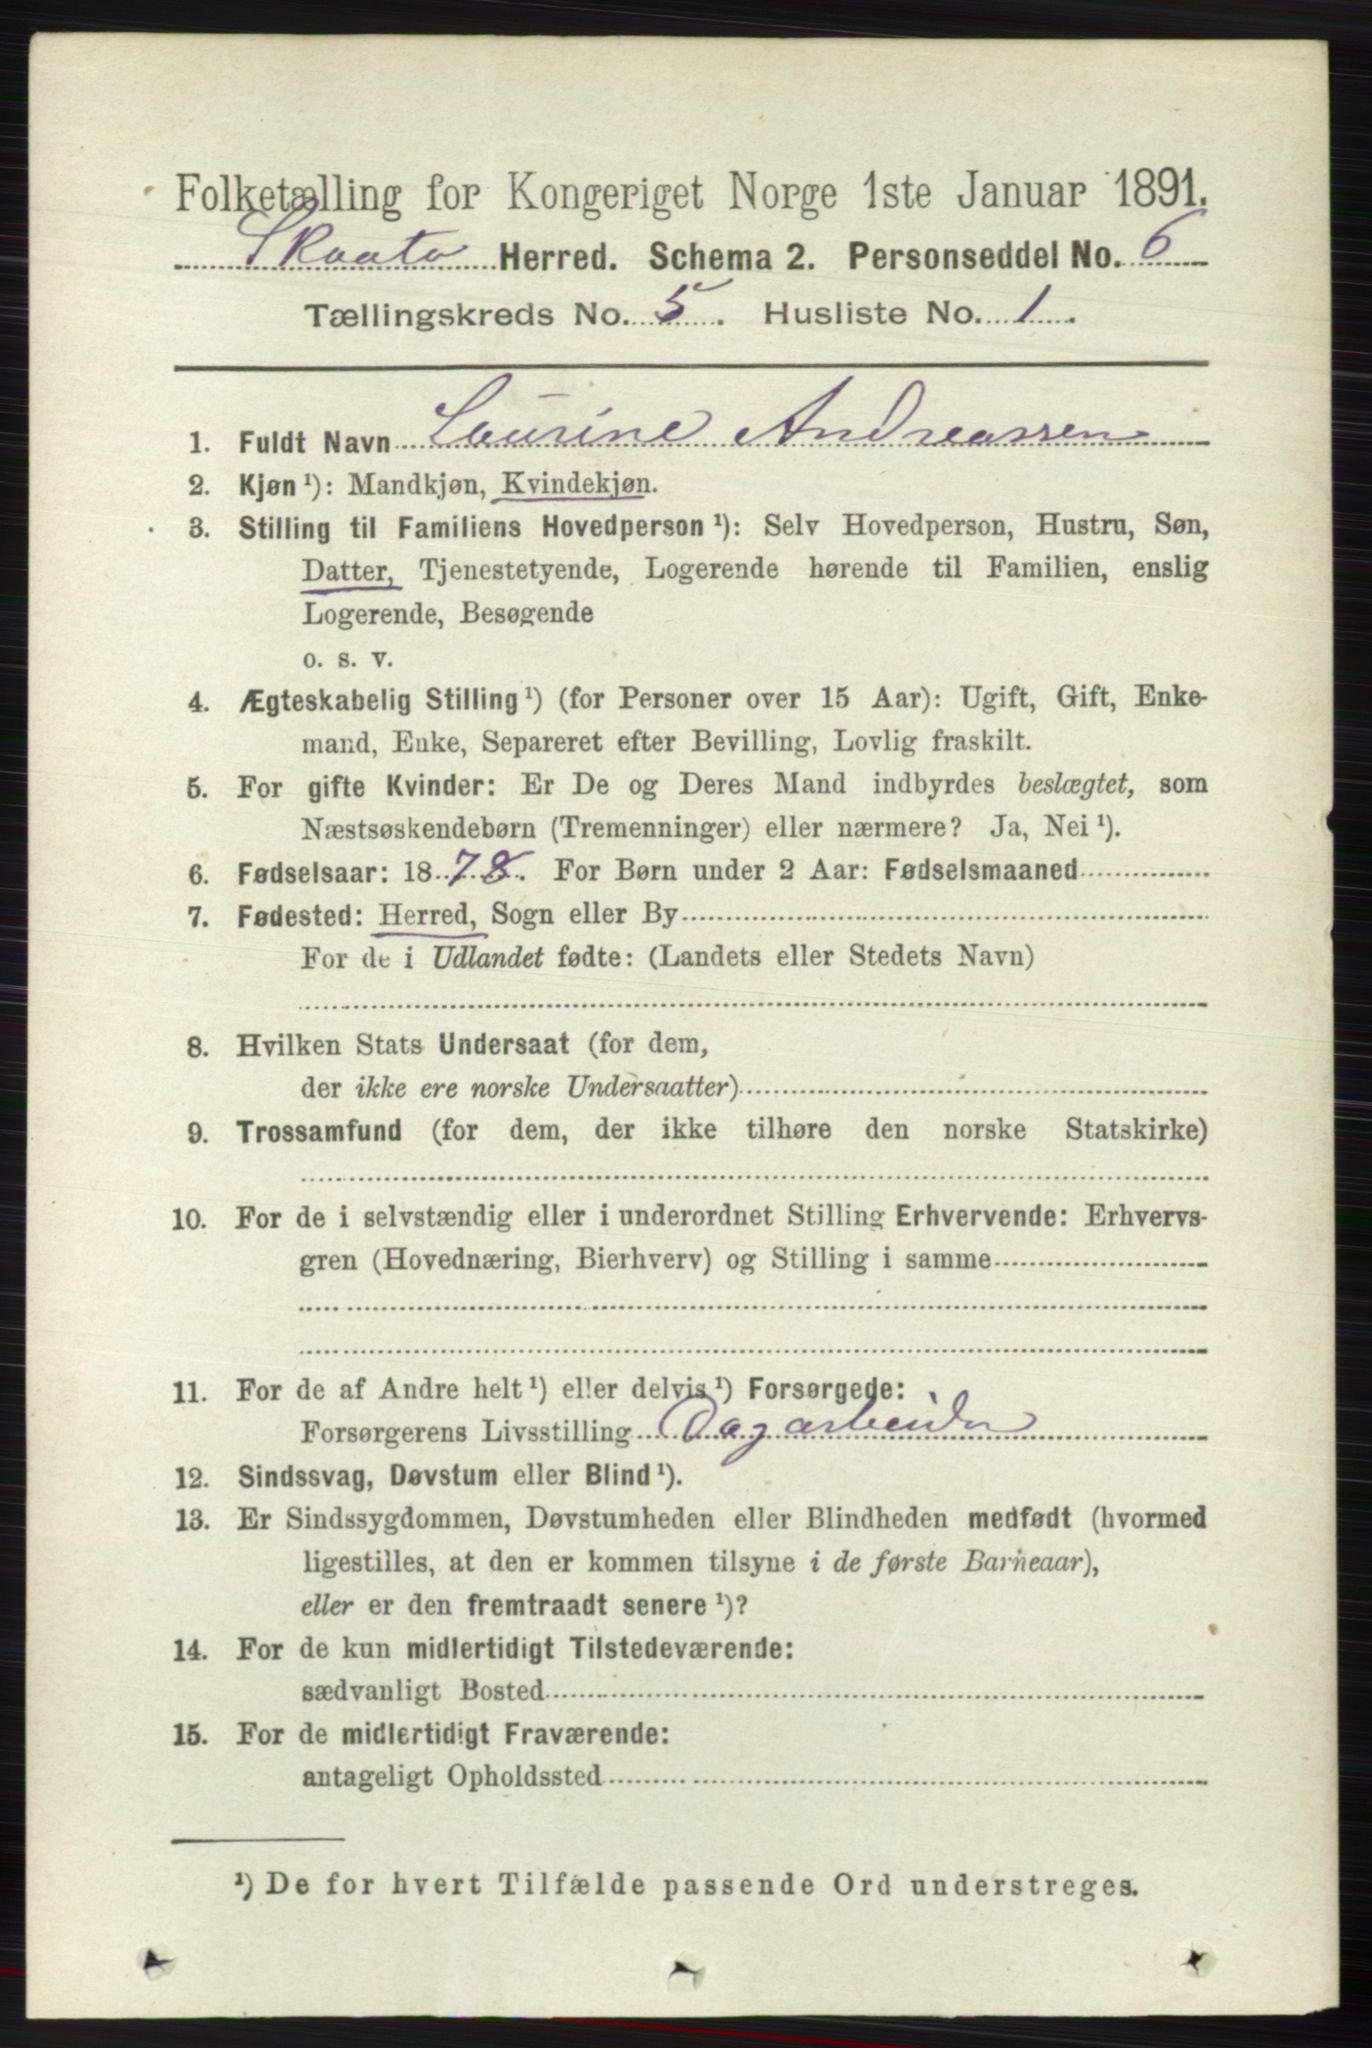 Folketælling for Kongeriget Norge 1ste Januar 1891.
Skaato Herred. Schema 2. Personseddel No. 6
Tællingskreds No. 5. Husliste No. 1.
1. Fuldt Navn Laurine Andreassen
2. Kjøn ¹): Mandkjøn, Kvindekjøn.
3. Stilling til Familiens Hovedperson ¹): Selv Hovedperson, Hustru, Søn,
Datter, Tjenestetyende, Logerende hørende til Familien, enslig
Logerende, Besøgende
o. s. v.
4. Ægteskabelig Stilling ¹) (for Personer over 15 Aar): Ugift, Gift, Enke-
mand, Enke, Separeret efter Bevilling, Lovlig fraskilt.
5. For gifte Kvinder: Er De og Deres Mand indbyrdes beslægtet, som
Næstsøskendebørn (Tremenninger) eller nærmere? Ja, Nei ¹).
6. Fødselsaar: 1878. For Børn under 2 Aar: Fødselsmaaned
7. Fødested: Herred, Sogn eller By
For de i Udlandet fødte: (Landets eller Stedets Navn)
8. Hvilken Stats Undersaat (for dem,
der ikke ere norske Undersaatter)
9. Trossamfund (for dem, der ikke tilhøre den norske Statskirke)
10. For de i selvstændig eller i underordnet Stilling Erhvervende: Erhvervs-
gren (Hovednæring, Bierhverv) og Stilling i samme
11. For de af Andre helt ¹) eller delvis ¹) Forsørgede:
Forsørgerens Livsstilling Dagarbeider
12. Sindssvag, Døvstum eller Blind ¹).
13. Er Sindssygdommen, Døvstumheden eller Blindheden medfødt (hvormed
ligestilles, at den er kommen tilsyne i de første Barneaar),
eller er den fremtraadt senere ¹)?
14. For de kun midlertidigt Tilstedeværende:
sædvanligt Bosted
15. For de midlertidigt Fraværende:
antageligt Opholdssted
¹) De for hvert Tilfælde passende Ord understreges.